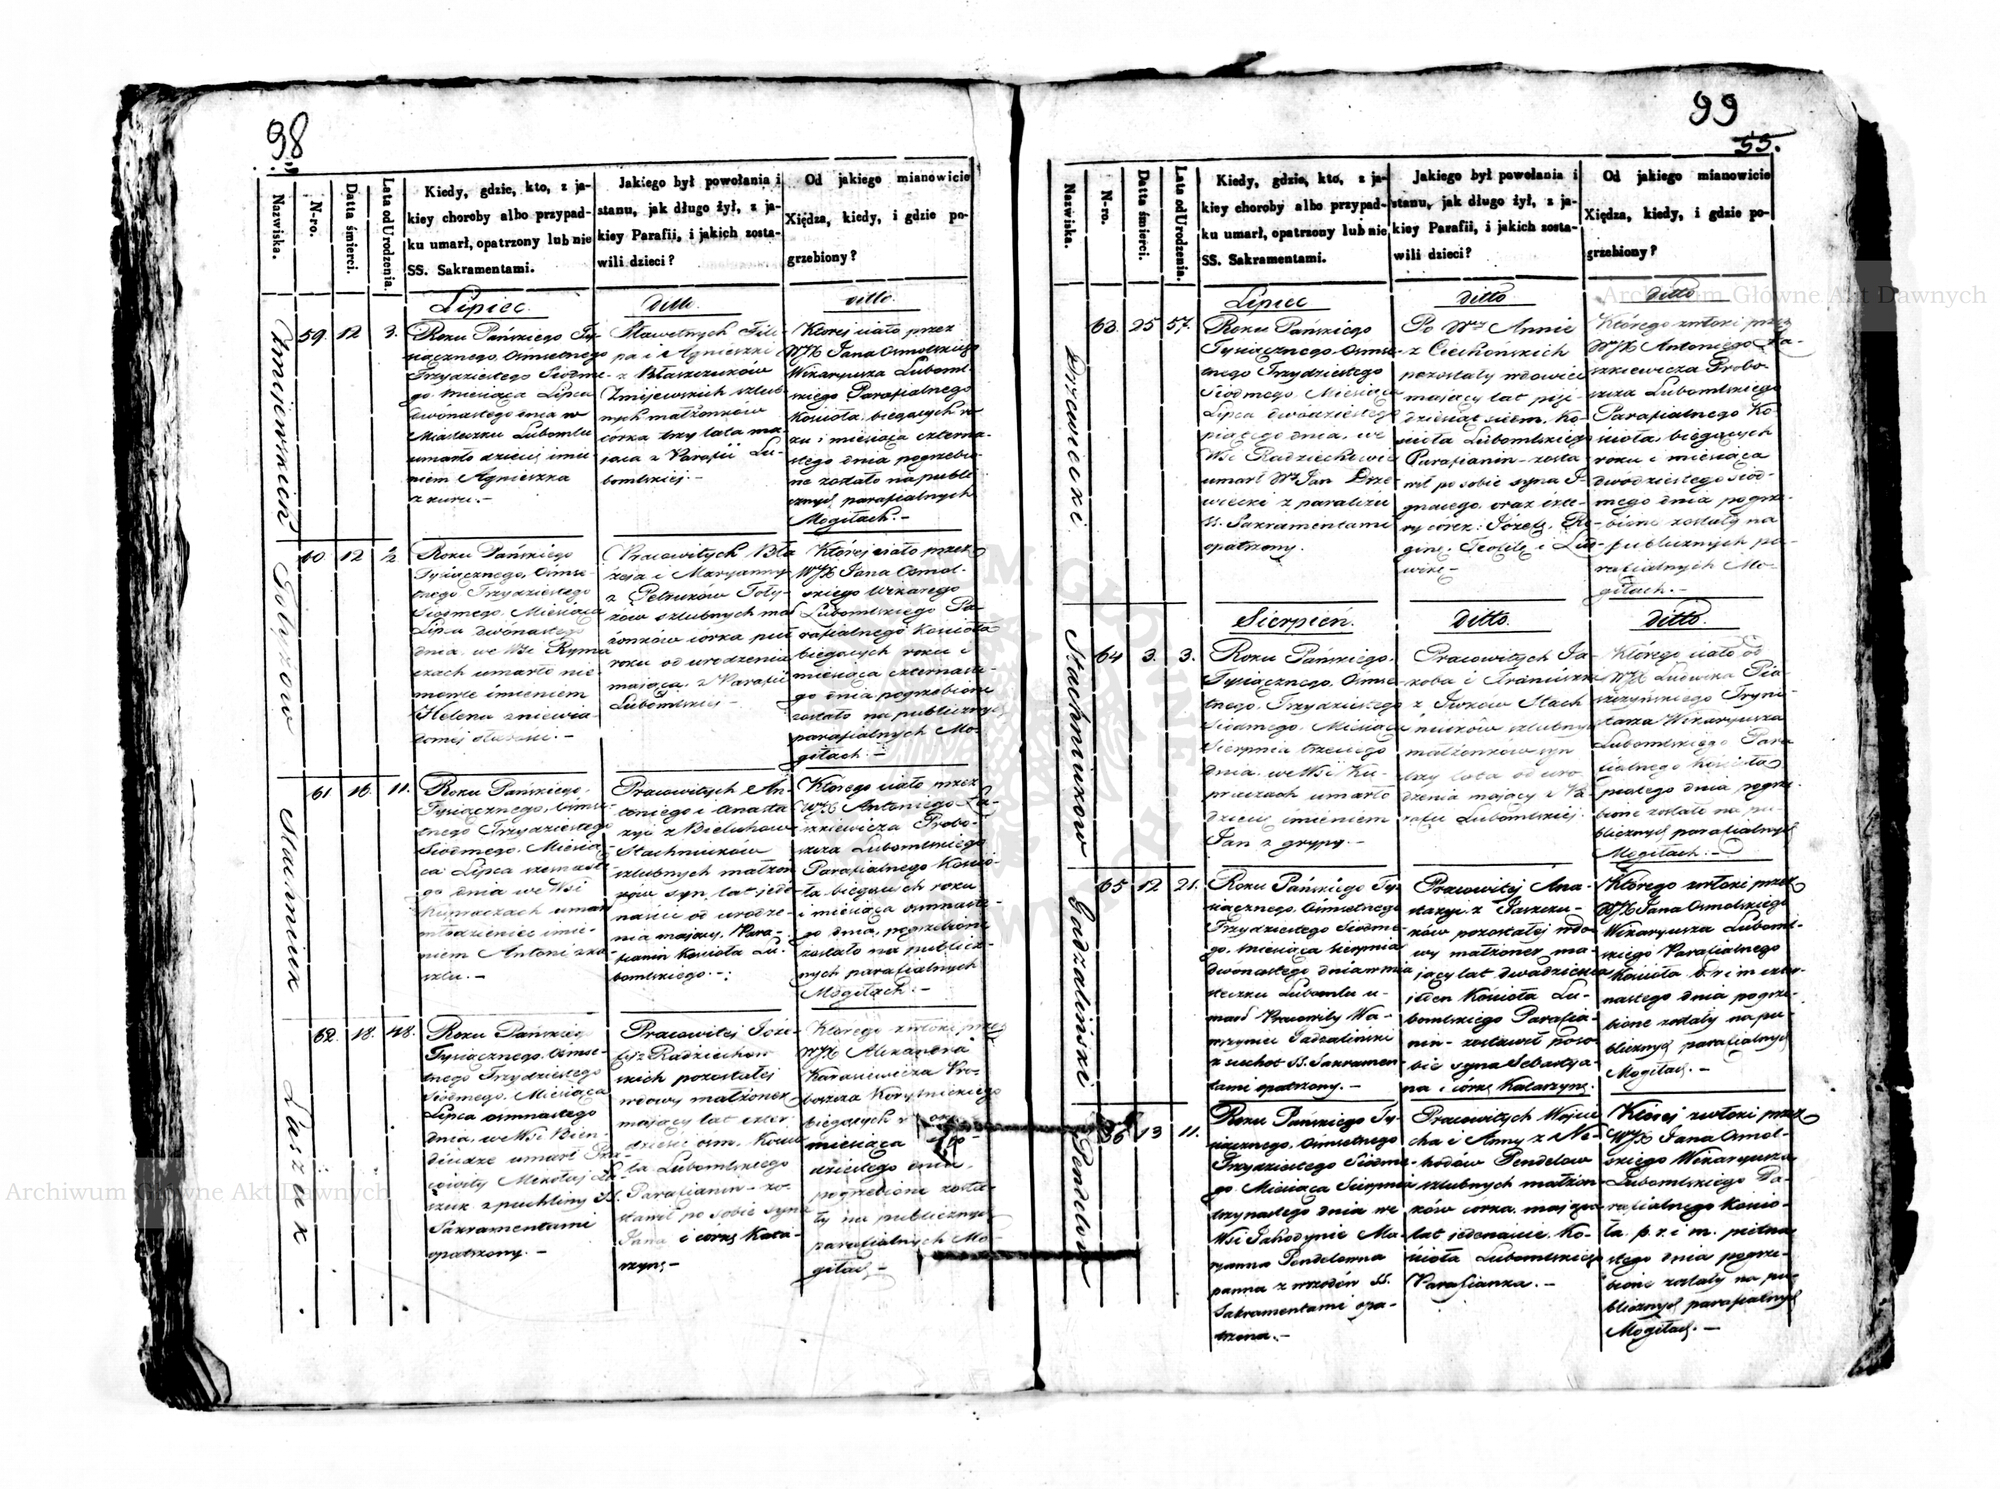 98
Nazwiska.
N-ro.
Datta śmierci.
Lata od Urodzenia.
Kiedy, gdzie, kto, z ja-
kiey choroby albo przypad-
ku umarł, opatrzony lub nie
SS. Sakramentami.
Jakiego był powołania i
stanu, jak długo żył, z ja-
kiey Parafii, i jakich zosta-
wili dzieci?
Od jakiego mianowicie
Xiędza, kiedy, i gdzie po-
grzebiony?
Lipiec
ditto.
ditto.
Żmijewskich
59. 12 3.
Roku Pańskiego Ty-
siącznego, Ośmsetnego
Trzydziestego Siódme-
go. Miesiąca Lipca
dwónastego dnia w
Miasteczku Lubomlu
umarło dziecię imie-
niem Agnieszka
z kuru.-
Sławetnych Fili-
pa i Agnieszki
z Błaszczuków
Żmijewskich szlub-
nych małżonków
córka trzy lata ma-
jąca z Parafii Lu-
bomlskiej.-
Ktorej ciało przez
WJX Jana Osmolskiego
Wikaryusza Luboml-
skiego Parafialnego
Kościoła, biegących ro-
ku i miesiąca czterna-
stego dnia pogrzebio-
ne zostało na publi-
cznych parafialnych
Mogiłach.-
60 12 ½
Roku Pańskiego
Tysiącznego, Ośmse-
tnego Trzydziestego
Siódmego. Miesiąca
Lipca dwónastego
dnia, we Wsi Ryma
czach umarło nie-
mowle imieniem
Helena z niewia-
domej słabości.-
Pracowitych Bła
żeja i Maryanny
z Petruków Goły-
żów szlubnych mał
żonków córka puł
roku od urodzenia
mająca, z Parafii
Lubomlskiej-
Której ciało przez
WJX Jana Osmol-
skiego Wikarego
Lubomlskiego Pa-
rafialnego Kościoła
biegących roku i
miesiąca czternaste-
go dnia pogrzebione
zostało na publicznych
parafialnych Mo-
giłach.-
Stachniuk
61 16. 11.
Roku Pańskiego,
Tysiącznego, Ośmse-
tnego Trzydziestego
Siódmego. Miesią-
ca Lipca szesnaste-
go dnia we Wsi
Kupraczach umarł
młodzieniec imie-
niem Antoni z ka-
szlu.-
Pracowitych An-
toniego i Anasta
zyi z Bieluchow
Stachniuków
szlubnych małżon
ków syn, lat jede-
naście od urodze-
nia mający. Para-
fianin Kościoła Lu-
bomlskiego.-
Którego ciało przez
WJX Antoniego La-
szkiewicza Probo-
szcza Lubomlskiego
Parafialnego Kościo-
ła, biegących roku
i miesiąca osmnaste-
go dnia, pogrzebione
zostało na publicz-
nych parafialnych
Mogiłach.-
Łaszuk
62. 18. 48.
Roku Pańskiego
Tysiącznego, Ośmse-
tnego Trzydziestego
Siódmego. Miesiąca
Lipca osmnastego
dnia, we Wsi Bien-
diudze umarł Pra-
cowity Mikołaj Ła-
szuk z puchliny SS.
Sakramentami
opatrzony.-
Pracowitej Józe-
fy z Radziechow
skich pozostałej
wdowy małżonek
mający lat czter
dzieści ośm, Kościo
ła Lubomlskiego
Parafianin- zo-
stawił po sobie syna
Jana i córkę Kata-
rzynę-
Ktorego zwłoki przez
WJX Alexandra
Karasiewicza Pro-
boszcza Korytnickiego
biegących r
miesiąca
dziestego dnia,
pogrzebione zosta-
ły na publicznych
parafialnych Mo-
giłach.-
99
55.
Nazwiska.
N-ro.
Datta śmierci.
Lata od Urodzenia.
Kiedy, gdzie, kto, z ja-
kiey choroby albo przypad-
ku umarł, opatrzony lub nie
SS. Sakramentami.
Jakiego był powołania i
stanu, jak długo żył, z ja-
kiey Parafii, i jakich zosta-
wili dzieci?
Od jakiego mianowicie
Xiędza, kiedy, i gdzie po-
grzebiony?
Lipiec
ditto
ditto
Drzewiecki
63. 25 57.
Roku Pańskiego
Tysiącznego, Ośmse-
tnego Trzydziestego
Siódmego. Miesiąca
Lipca dwudziestego
piątego dnia, we
Wsi Radziechowie
umarł Wż Jan Drze-
wiecki z paraliżu
SS. Sakramentami
opatrzony.
Po Wż Annie
z Ciechońskich
pozostały wdowiec
mający lat pięć-
dziesiąt siem, Ko-
ścioła Lubomlskiego
Parafianin- zosta-
wił po sobie syna I-
gnacego, oraz czte-
ry córek: Józefę, Re-
ginę, Teofilę i Lud-
wikę-
Którego zwłoki przez
WJX Antoniego La-
szkiewicza Probo-
szcza Lubomlskiego
Parafialnego Ko-
ścioła, biegących
roku i miesiąca
dwódziestego siód-
mego dnia pogrze-
bione zostały na
publicznych pa-
rafialnych Mo-
giłach.-
Sierpień.
ditto.
ditto.
Stachniuków
64 3. 3.
Roku Pańskiego,
Tysiącznego, Ośmse-
tnego, Trzydziestego
Siódmego. Miesiąca
Sierpnia trzeciego
dnia, we Wsi Ku-
praczach umarło
dziecię imieniem
Jan z grypy.-
Pracowitych Ja-
koba i Franciszki
z Iwków Stach
niuków szlubnych
małżonków syn
trzy lata od uro
dzenia mający z Pa
rafii Lubomlskiej.
Którego ciało od
WJX Ludwika Pia-
szczyńskiego Tryni-
tarza Wikaryusza
Lubomlskiego Para
fialnego Kościoła
piątego dnia pogrze-
bione zostało na pu-
blicznych parafialnych
Mogiłach.-
65 12. 21.
Roku Pańskiego Ty-
siącznego, Ośmsetnego
Trzydziestego Siódme-
go, miesiąca Sierpnia
dwónastego dnia w mia
steczku Lubomlu u-
marł Pracowity Wa-
wrzyniec Gadzaliński
z suchot SS. Sakramen-
tami opatrzony.-
Pracowitej Ana-
stazyi z Jaszczu-
ków pozostałej wdo
wy małżonek ma-
jący lat dwadzieścia
jeden Kościoła Lu-
bomlskiego Parafia-
nin- zostawił po so-
bie syna Sebastya-
na i córkę Katarzynę.
Którego zwłoki przez
WJX Jana Osmolskiego
Wikaryusza Luboml-
skiego Parafialnego
Kościoła b. r. i m. czter-
nastego dnia pogrze-
bione zostały na pu-
blicznych parafialnych
Mogiłach.-
Gadzaliński
Pendelów
66 13 11.
Roku Pańskiego Ty-
siącznego, Ośmsetnego
Trzydziestego Siódme-
go. Miesiąca Sierpnia
trzynastego dnia we
Wsi Jahodynie Ma-
ryanna Pendelowna
panna z wrzodów SS.
Sakramentami opa-
trzona.-
Pracowitych Wojcie
cha i Anny z Ne-
hodów Pendelow
szlubnych małżon
ków córka, mająca
lat jedenaście, Ko-
ścioła Lubomlskiego
Parafianka.-
Której zwłoki przez
WJX Jana Osmol-
skiego Wikaryusza
Lubomlskiego Pa-
rafialnego Kościo-
ła, b. r. i m. piętna
stego dnia pogrze-
bione zostały na pu-
blicznych parafialnych
Mogiłach.-
Archiwum Główne Akt Dawnych
Archiwum Główne Akt Dawnych